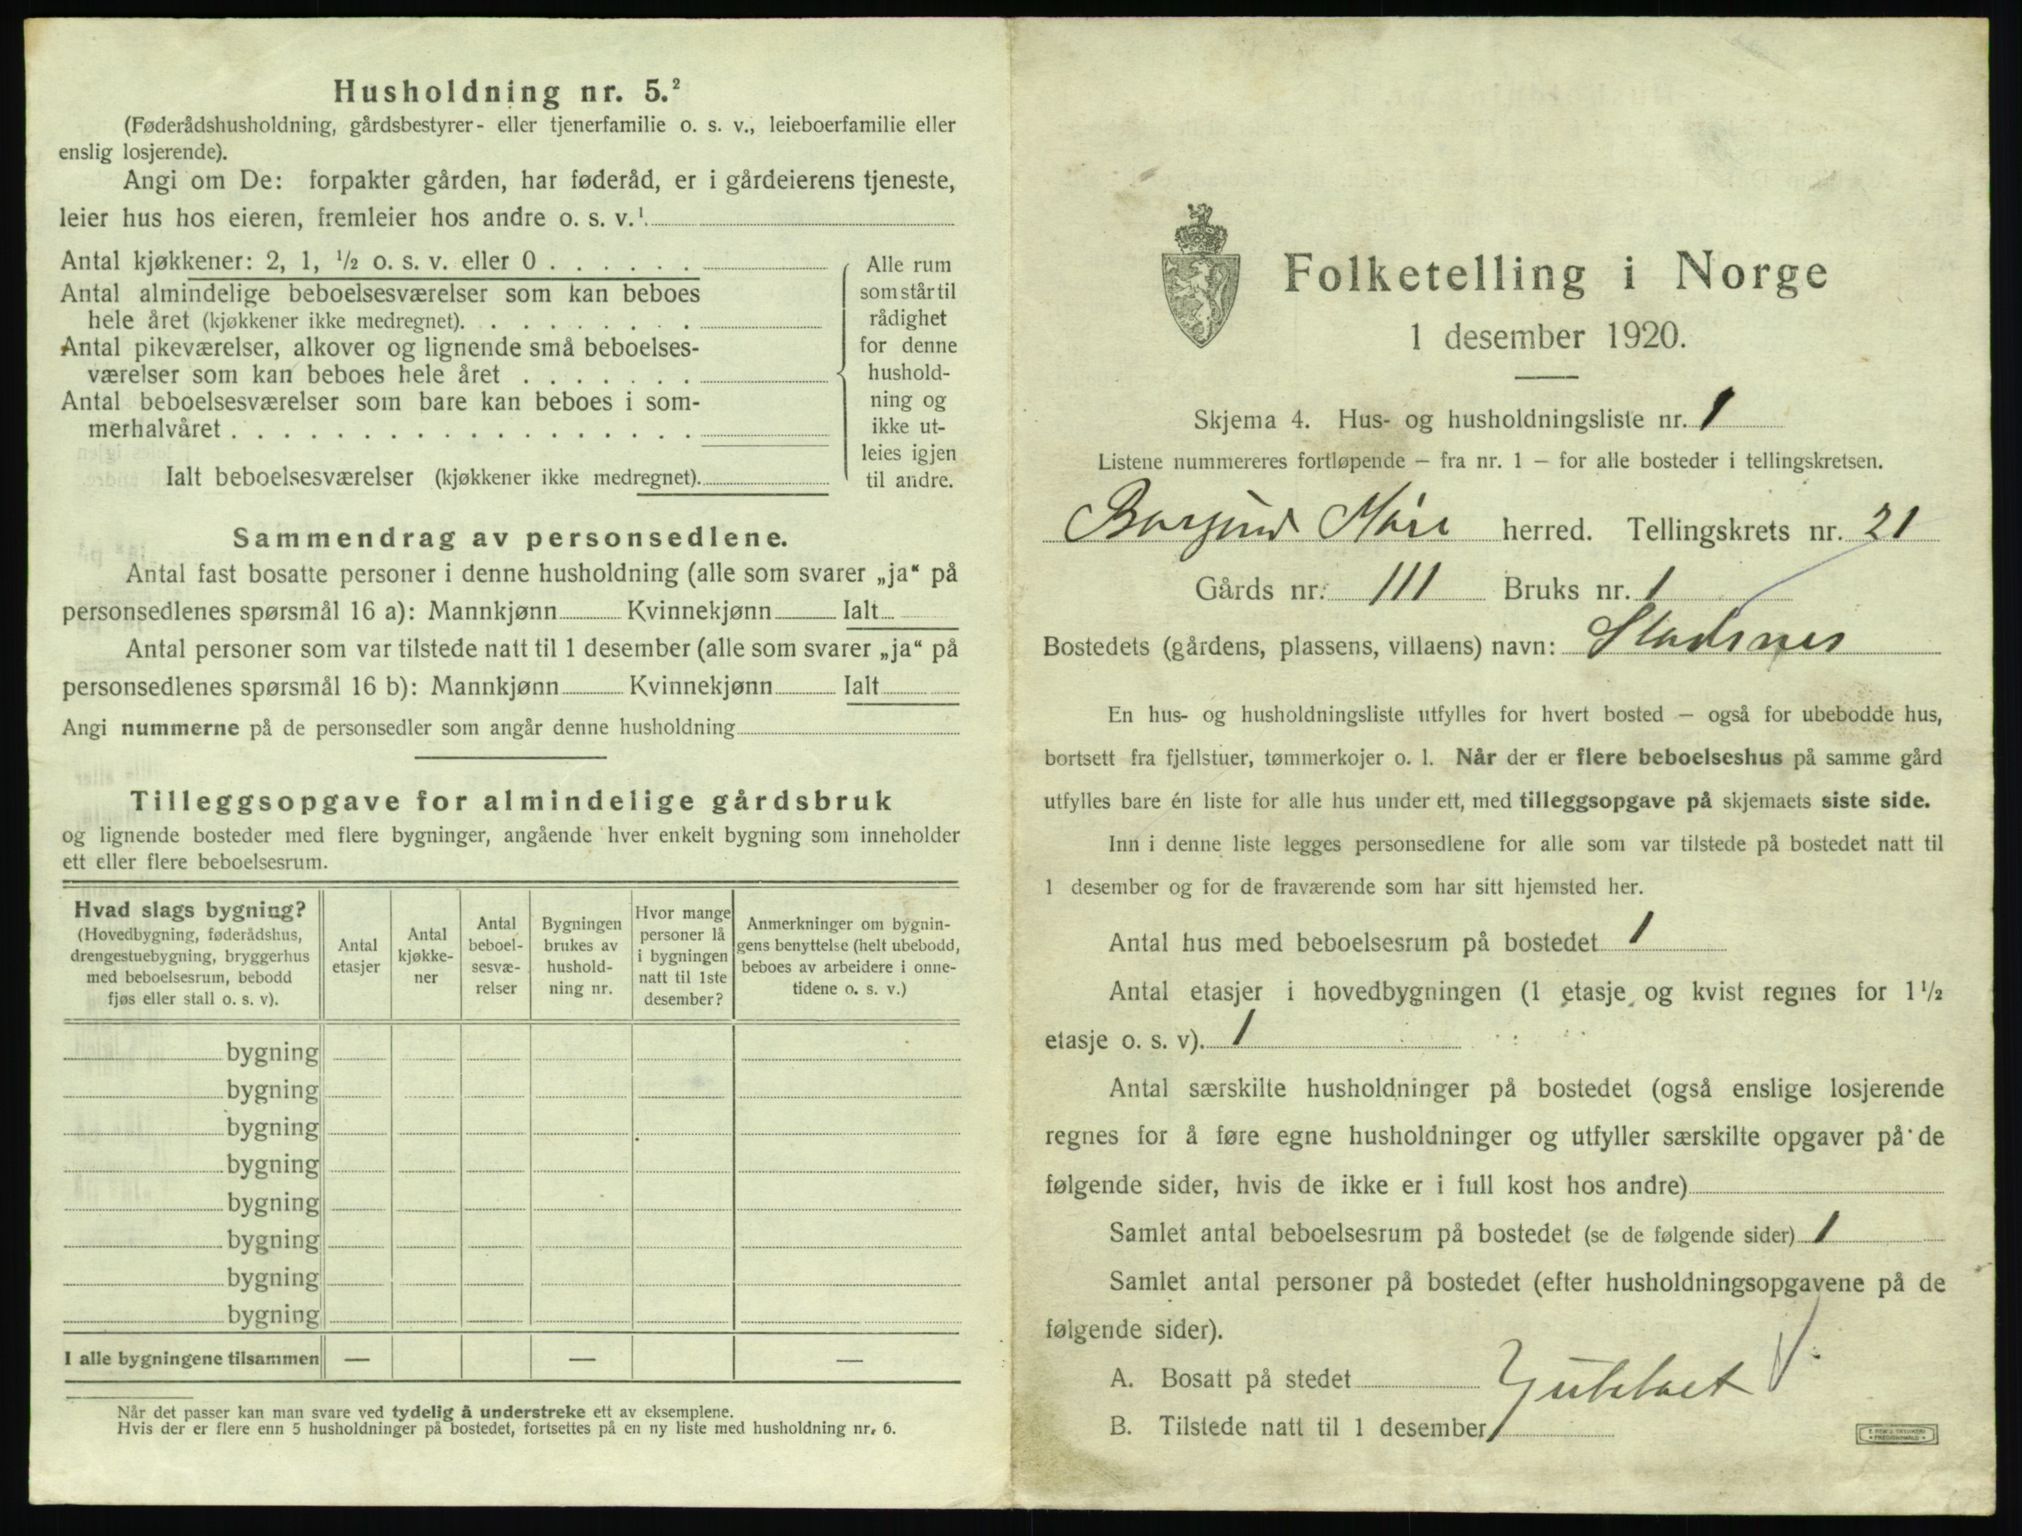 Husholdning nr. 5.²
(Føderådshusholdning, gårdsbestyrer- eller tjenerfamilie o. s. v., leieboerfamilie eller
enslig losjerende).
Angi om De: forpakter gården, har føderåd, er i gårdeierens tjeneste,
leier hus hos eieren, fremleier hos andre o. s. v.¹
Antal kjøkkener: 2, 1, ½ o. s. v. eller 0
Antal almindelige beboelsesværelser som kan beboes
hele året (kjøkkener ikke medregnet).
Antal pikeværelser, alkover og lignende små beboelses-
værelser som kan beboes hele året
Antal beboelsesværelser som bare kan beboes i som-
merhalvåret
Ialt beboelsesværelser (kjøkkener ikke medregnet).
Alle rum
som står til
rådighet
for denne
hushold-
ning og
ikke ut-
leies igjen
til andre.
Sammendrag av personsedlene.
Antal fast bosatte personer i denne husholdning (alle som svarer „ja“ på
personsedlenes spørsmål 16 a): Mannkjønn Kvinnekjønn Ialt
Antal personer som var tilstede natt til 1 desember (alle som svarer „ja“ på
personsedlenes spørsmål 16 b): Mannkjønn Kvinnekjønn Ialt
Angi nummerne på de personsedler som angår denne husholdning
Tilleggsopgave for almindelige gårdsbruk
og lignende bosteder med flere bygninger, angående hver enkelt bygning som inneholder
ett eller flere beboelsesrum.
Hvad slags bygning?
(Hovedbygning, føderådshus,
drengestuebygning, bryggerhus
med beboelsesrum, bebodd
fjøs eller stall o. s. v).
Antal
etasjer
Antal
kjøkke-
ner
Antal
beboel-
sesvæ-
relser
Bygningen
brukes av
hushold-
ning nr.
Hvor mange
personer lå
i bygningen
natt til 1ste
desember?
Anmerkninger om bygnin-
gens benyttelse (helt ubebodd,
beboes av arbeidere i onne-
tidene o. s. v.)
bygning
bygning
bygning
bygning
bygning
bygning
bygning
bygning
I alle bygningene tilsammen — — —
Når det passer kan man svare ved tydelig å understreke ett av eksemplene.
Hvis der er flere enn 5 husholdninger på bostedet, fortsettes på en ny liste med husholdning nr. 6.
Folketelling i Norge
1 desember 1920.
Skjema 4. Hus- og husholdningsliste nr. 1
Listene nummereres fortløpende — fra nr. 1 — for alle bosteder i tellingskretsen.
Borgund Møre herred. Tellingskrets nr. 21
Gårds nr. 111 Bruks nr. 1
Bostedets (gårdens, plassens, villaens) navn: Stadsnes
En hus- og husholdningsliste utfylles for hvert bosted — også for ubebodde hus,
bortsett fra fjellstuer, tømmerkojer o. l. Når der er flere beboelseshus på samme gård
utfylles bare én liste for alle hus under ett, med tilleggsopgave på skjemaets siste side.
Inn i denne liste legges personsedlene for alle som var tilstede på bostedet natt til
1 desember og for de fraværende som har sitt hjemsted her.
Antal hus med beboelsesrum på bostedet 1
Antal etasjer i hovedbygningen (1 etasje og kvist regnes for 1½
etasje o. s. v). 1
Antal særskilte husholdninger på bostedet (også enslige losjerende
regnes for å føre egne husholdninger og utfyller særskilte opgaver på de
følgende sider, hvis de ikke er i full kost hos andre)
Samlet antal beboelsesrum på bostedet (se de følgende sider) 1
Samlet antal personer på bostedet (efter husholdningsopgavene på de
følgende sider).
A. Bosatt på stedet
B. Tilstede natt til 1 desember